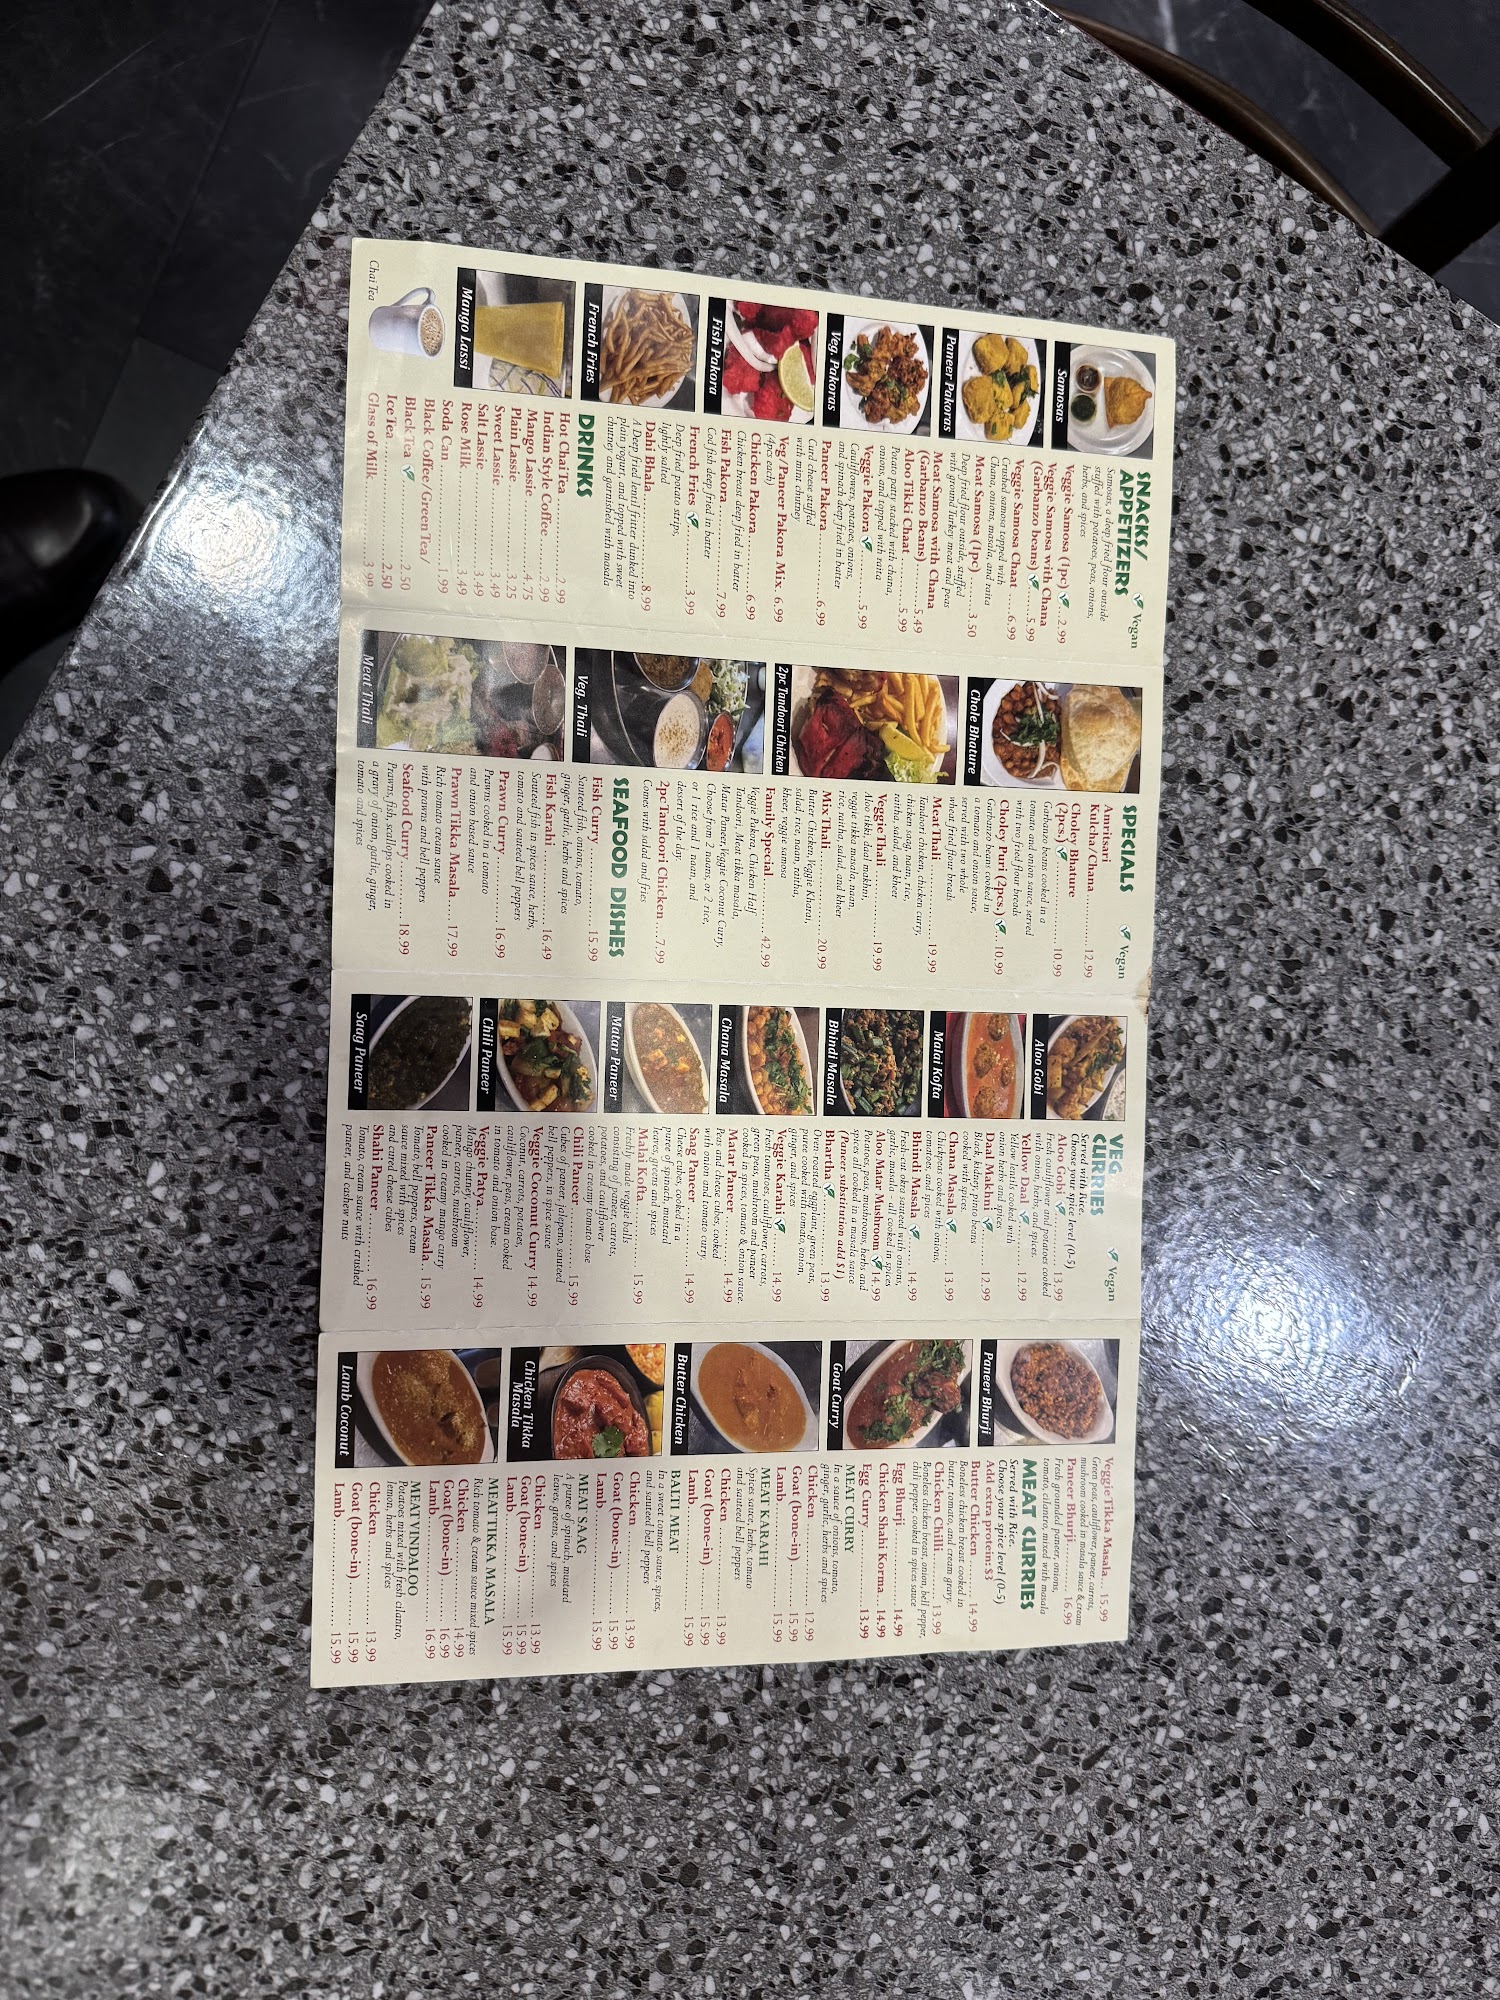 SNACKS/
APPETIZERS
Vegan
Samosas, a deep fried flour outside
stuffed with potatoes, peas, onions,
herbs, and spices
Veggie Samosa (1pc) . 2.99
Veggie Samosa with Chana
(Garbanzo beans) ..... 5.99
Veggie Samosa Chaat .... 6.99
Crushed samosa topped with
Chana, onions, masala, and raita
Meat Samosa (1pc) ........ 3.50
Deep fried flour outside, stuffed
with ground Turkey meat and peas
Meat Samosa with Chana
(Garbanzo Beans) ......... 5.49
Aloo Tikki Chaat .......... 5.99
Potato patty stacked with chana,
onions, and topped with raita
Veggie Pakora ......... 5.99
Cauliflowers, potatoes, onions,
and spinach deep fried in batter
Paneer Pakora .............. 6.99
Curd cheese stuffed
with mint chutney
Veg/Paneer Pakora Mix . 6.99
(4pcs each)
Chicken Pakora ............. 6.99
Chicken breast deep fried in batter
Fish Pakora .................. 7.99
Cod fish deep fried in batter
French Fries ............ 3.99
Deep fried potato strips,
lightly salted
Dahi Bhala .................. 8.99
A Deep fried lentil fritter dunked into
plain yogurt, and topped with sweet
chutney and garnished with masala
DRINKS
Hot Chai Tea ................ 2.99
Indian Style Coffee ........ 2.99
Mango Lassie ................ 4.75
Plain Lassie .................. 3.25
Sweet Lassie ................. 3.49
Salt Lassie .................... 3.49
Rose Milk ..................... 3.49
Soda Can ...................... 1.99
Black Coffee/Green Tea/
Black Tea ................ 1.50
Ice Tea ......................... 2.50
Glass of Milk ................ 3.99
Samosas
Paneer Pakoras
Veg. Pakoras
Fish Pakora
French Fries
Mango Lassi
Chai Tea
SPECIALS
Vegan
Amritsari
Kulcha/Chana ............. 12.99
Choley Bhature
(2pcs.) .................... 10.99
Garbanzo beans cooked in a
tomato and onion sauce, served
with two fried flour breads
Choley Puri (2pcs.) ... 10.99
Garbanzo beans cooked in
a tomato and onion sauce,
served with two whole
wheat fried flour breads
Meat Thali .................. 19.99
Tandoori chicken, chicken curry,
chicken saag, naan, rice,
raitha, salad, and kheer
Veggie Thali ................ 19.99
Aloo tikki, daal makhni,
veggie tikka masala, naan,
rice, raitha, salad, and kheer
Mix Thali .................... 20.99
Butter Chicken, Veggie Kharai,
salad, rice, naan, raitha,
kheer, veggie samosa
Family Special ............. 42.99
Veggie Pakora, Chicken Half
Tandoori, Meat tikka masala,
Matar Paneer, Veggie Coconut Curry,
Choose from 2 naans, or 2 rice,
or 1 rice and 1 naan, and
dessert of the day.
2pc Tandoori Chicken .... 7.99
Comes with salad and fries
SEAFOOD DISHES
Fish Curry ................... 15.99
Sauteed fish, onions, tomato,
ginger, garlic, herbs and spices
Fish Karahi .................. 16.49
Sauteed fish in spices sauce, herbs,
tomato and sauteed bell peppers
Prawn Curry ................ 16.99
Prawns cooked in a tomato
and onion based sauce
Prawn Tikka Masala ..... 17.99
Rich tomato cream sauce
with prawns and bell peppers
Seafood Curry .............. 18.99
Prawns, fish, scallops cooked in
a gravy of onion, garlic, ginger,
tomato and spices
Chole Bhature
2pc Tandoori Chicken
Veg. Thali
Meat Thali
VEG
CURRIES
Vegan
Served with Rice.
Choose your spice level (0-5)
Aloo Gobi ................ 13.99
Fresh cauliflower and potatoes cooked
with onion, herbs, and spices.
Yellow Daal ............. 12.99
Yellow lentils cooked with
onion herbs and spices
Daal Makhni ............ 12.99
Black, kidney, pinto beans
cooked with spices.
Chana Masala .......... 13.99
Chickpeas cooked with onions,
tomatoes, and spices
Bhindi Masala .......... 14.99
Fresh-cut okra sauteed with onions,
garlic, masala - all cooked in spices
Aloo Matar Mushroom 14.99
Potatoes, peas, mushrooms, herbs and
spices all cooked in a masala sauce
(Paneer substitution add $1)
Bhartha .................. 13.99
Oven-roasted eggplant, green peas,
puree cooked with tomato, onion,
ginger, and spices
Veggie Karahi .......... 14.99
Fresh tomatoes, cauliflower, carrots,
green peas, mushroom and paneer
cooked in spices, tomato & onion sauce.
Matar Paneer ............... 14.99
Peas and cheese cubes, cooked
with onion and tomato curry.
Saag Paneer ................. 14.99
Cheese cubes, cooked in a
puree of spinach, mustard
leaves, greens and spices
Malai Kofta ................. 15.99
Freshly made veggie balls
consisting of paneer, carrots,
potatoes, and cauliflower
cooked in creamy tomato base
Chili Paneer ................ 15.99
Cubes of paneer, jalepeno, sauteed
bell peppers, in spices sauce
Veggie Coconut Curry 14.99
Coconut, carrots, potatoes,
cauliflower, peas, cream cooked
in tomato and onion base.
Veggie Patya ................ 14.99
Mango chutney, cauliflower,
paneer, carrots, mushroom
cooked in creamy mango curry
Paneer Tikka Masala .. 15.99
Tomato, bell peppers, cream
sauce mixed with spices
and cured cheese cubes
Shahi Paneer ............... 16.99
Tomato, cream sauce with crushed
paneer, and cashew nuts
Aloo Gobi
Malai Kofta
Bhindi Masala
Chana Masala
Matar Paneer
Chili Paneer
Saag Paneer
Veggie Tikka Masala .... 15.99
Green peas, cauliflower, paneer, carrots,
mushroom cooked in masala sauce & cream
Paneer Bhurji .............. 16.99
Fresh grounded paneer, onions,
tomato, cilantro, mixed with masala
MEAT CURRIES
Served with Rice.
Choose your spice level (0-5)
Add extra protein-$3
Butter Chicken ............ 14.99
Boneless chicken breast cooked in
butter, tomato, and cream gravy.
Chicken Chilli .............. 13.99
Boneless chicken breast, onion, bell pepper,
chili pepper, cooked in spices sauce
Egg Bhurji ................... 14.99
Chicken Shahi Korma .. 14.99
Egg Curry .................... 13.99
MEAT CURRY
In a sauce of onions, tomato,
ginger, garlic, herbs and spices
Chicken ....................... 12.99
Goat (bone-in) ............. 15.99
Lamb ........................... 15.99
MEAT KARAHI
Spices sauce, herbs, tomato
and sauteed bell peppers
Chicken ....................... 13.99
Goat (bone-in) ............. 15.99
Lamb ........................... 15.99
BALTI MEAT
In a sweet tomato sauce, spices,
and sauteed bell peppers
Chicken ....................... 13.99
Goat (bone-in) ............. 15.99
Lamb ........................... 15.99
MEAT SAAG
A puree of spinach, mustard
leaves, greens, and spices
Chicken ....................... 13.99
Goat (bone-in) ............. 15.99
Lamb ........................... 15.99
MEAT TIKKA MASALA
Rich tomato & cream sauce mixed spices
Chicken ....................... 14.99
Goat (bone-in) ............. 16.99
Lamb ........................... 16.99
MEAT VINDALOO
Potatoes mixed with fresh cilantro,
lemon, herbs and spices
Chicken ....................... 13.99
Goat (bone-in) ............. 15.99
Lamb ........................... 15.99
Paneer Bhurji
Goat Curry
Butter Chicken
Chicken Tikka
Masala
Lamb Coconut